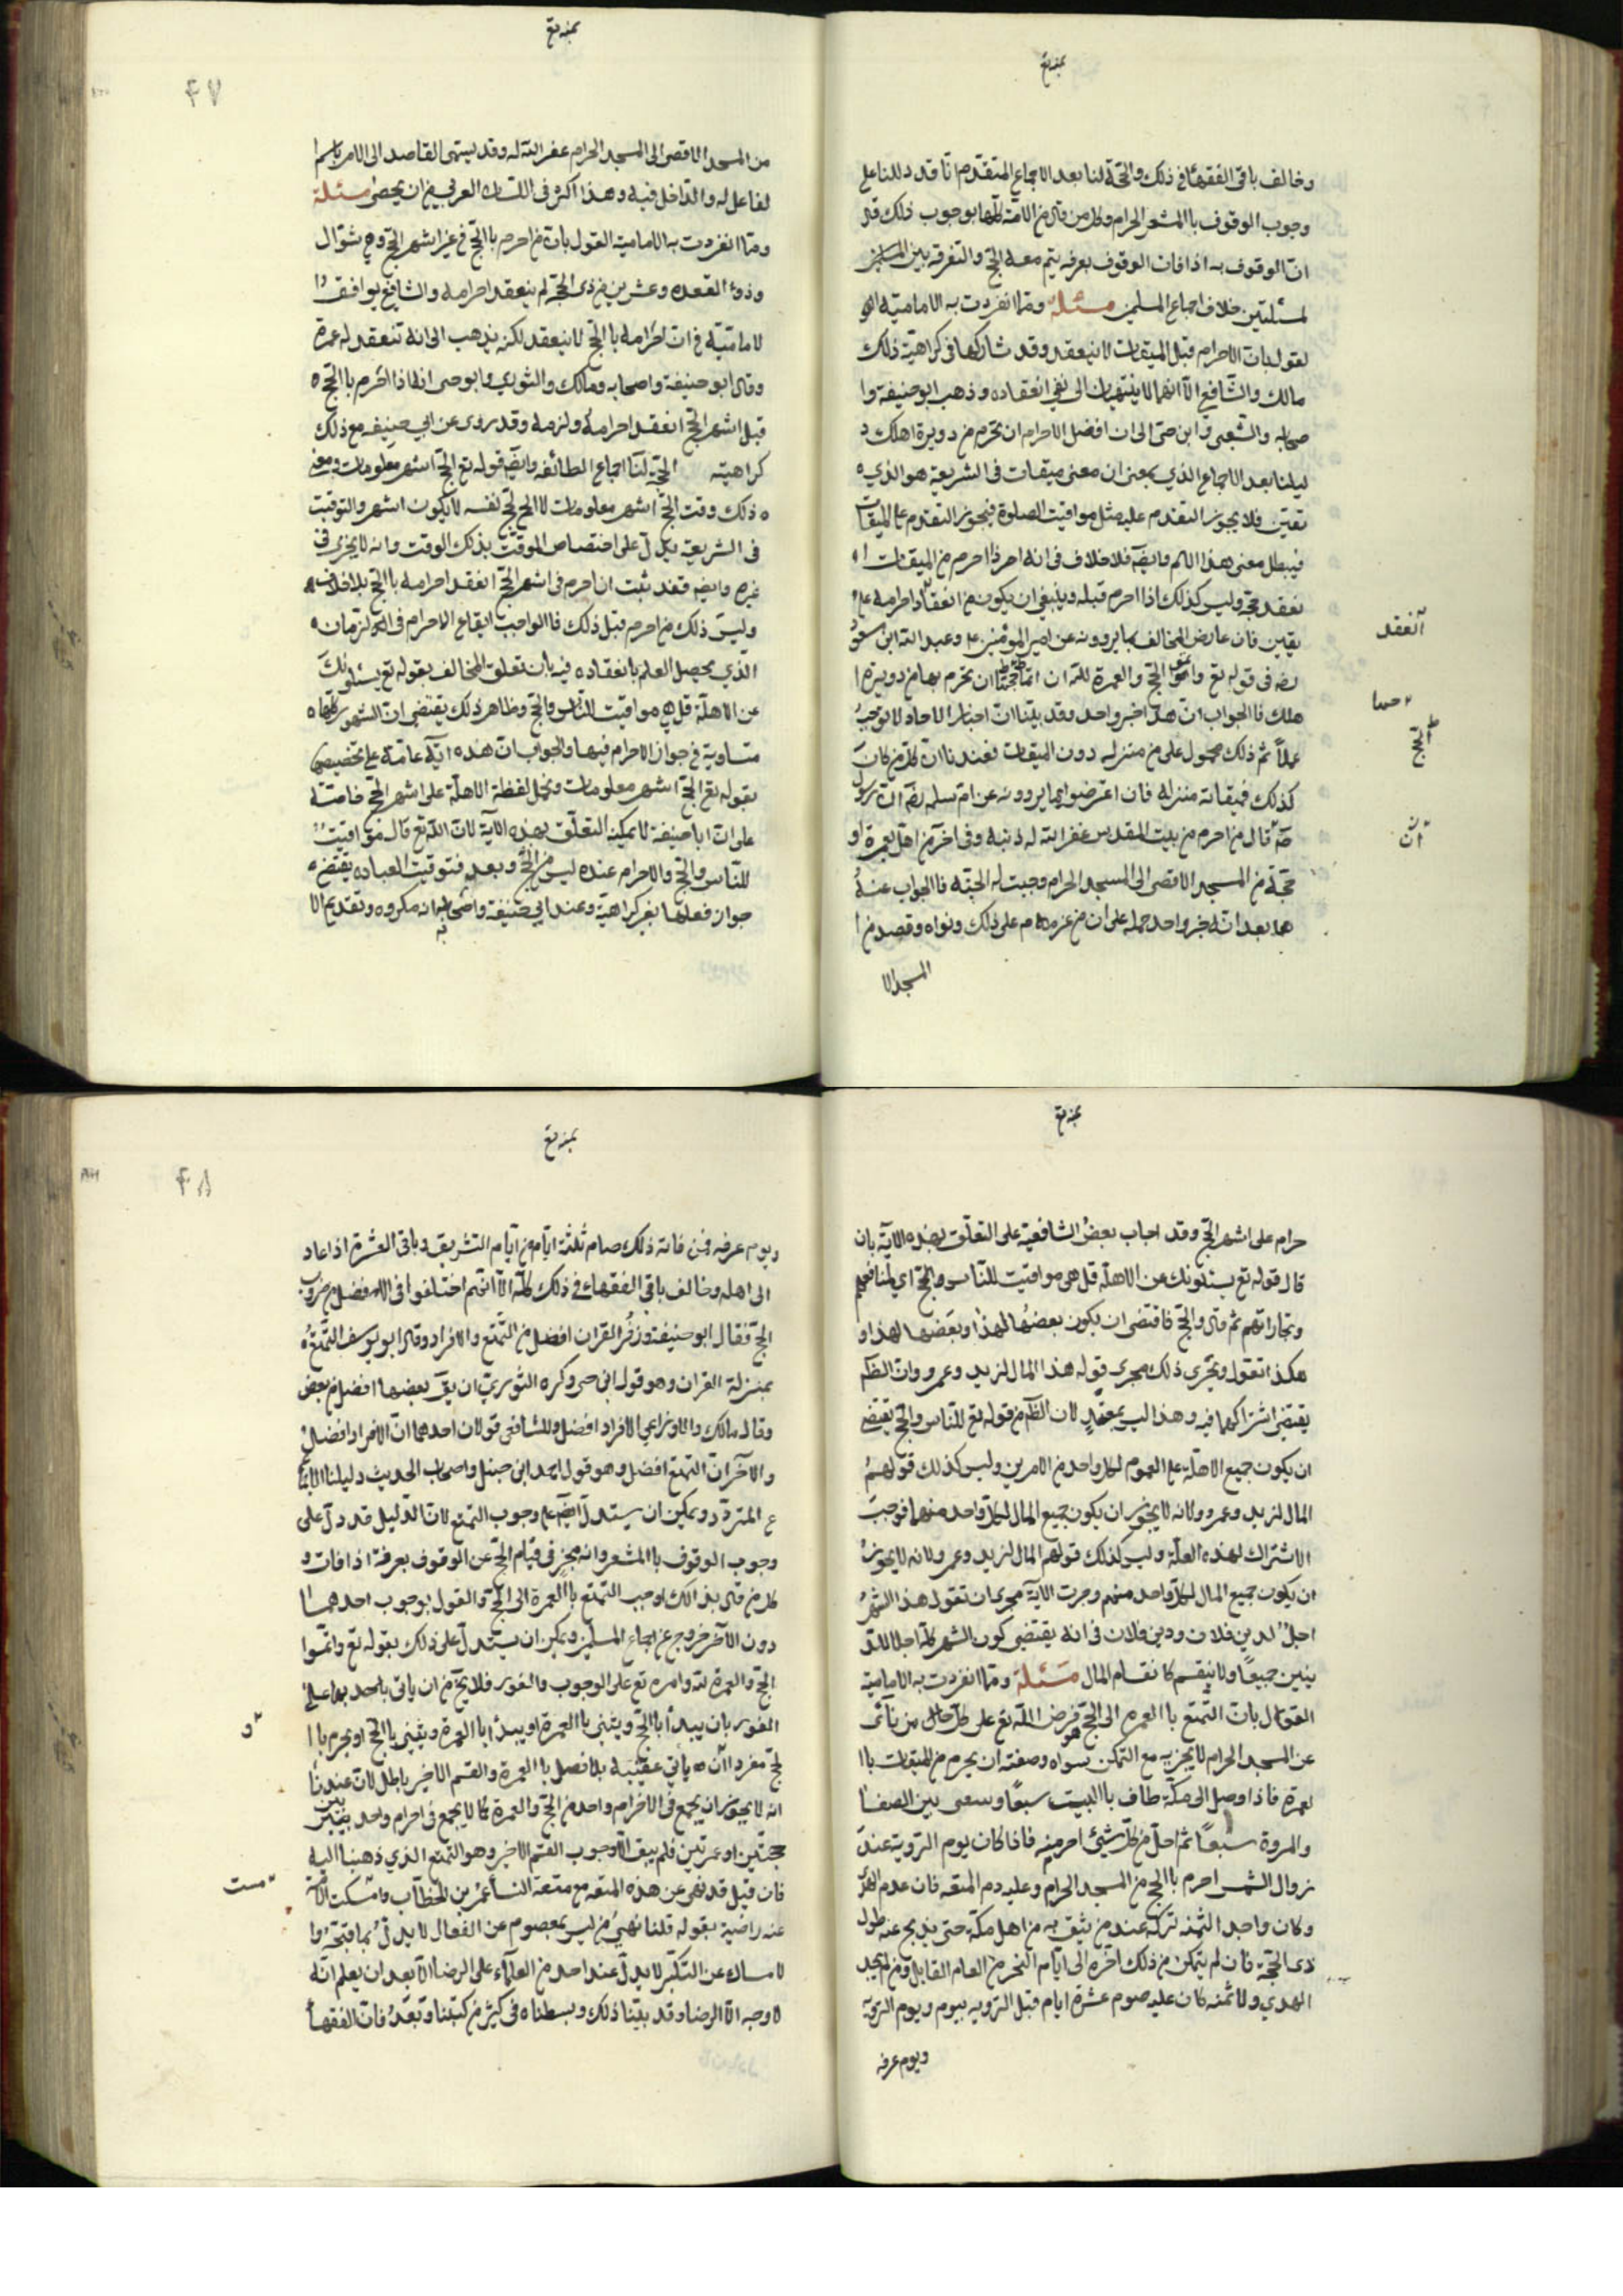 بمنه تع
وخالف باقى الفقهاء فى ذلك والحجّة لنا بعد الاجماع المتقدّم انّا قد دللنا على
وجوب الوقوف باالمشعر الحرام وكل من قال من الامّة بوجوب ذلك قال
انّ الوقوف به اذا فات الوقوف بعرفه يتم معه الحج والتفرقه بين المسلمين
لمسئلتين خلاف اجماع المسلمين مسئله وممّا انفردت به الاماميّة ا
لقول بانّ الاحرام قبل الميقات لا ينعقد وقد شاركها فى كراهية ذلك
مالك والشّافعي الّا انهما لا ينتهيان الى نفي انعقاده وذهب ابوحنيفة وا
صحابه والشّعبى وابن حىّ الى ان افضل الاحرام ان تحرم من دويرة اهلك د
ليلنا بعد الاجماع الذي بمعنى ان معنى ميقات فى الشريعة هو الذي
تعيّن فلا يجوز التقدم عليه مثل مواقيت الصلوة فتجويز التقدم على الميقات
فيبطل معنى هذا الاسم وايضه فلا خلاف فى انه اذا احرم من الميقات ا
نعقد حجّه وليس كذلك اذا احرم قبله وينبغي ان يكون من انعقاد احرامه على
يقين فان عارض المخالف بما يروونه عن امير المؤمنين ع وعبد الله ابن مسعود
رضه فى قوله تع واتموا الحج والعمرة لله ان اتمامهما ان تحرم بهما من دويرة ا
هلك فاالجواب انّ هذا خبر واحد وقد بيّنّا انّ اخبار الاحاد لا توجب
عملاً ثم ذلك محمول على من منزله دون الميقات فعندنا انّ كلّ من كان
كذلك فميقاته منزله فان اعترضوا بما يروونه عن ام سلمه رضه انّ رسول
صه قال من احرم من بيت المقدس غفر الله له ذنبه وفى اخر من اهل بعمرة او
حجّة من المسجد الاقصى الى المسجد الحرام وجبت له الجنّه فاالجواب عنه
هما بعد انّه خبر واحد حمله على ان من عزم على ذلك ونواه وقصد من ا
المسجد الا
آنعقد
اتمامهما
الحج
آنّ
بمنه تع
٤٧
من المسجد الاقصى الى المسجد الحرام غفر الله له وقد يسمى القاصد الى الامر باسم ا
لفاعل له والدّاخل فيه وهذا اكثر فى اللسان العربى من ان يحصى مسئلة
وممّا انفردت به الاماميّة القول بانّ من احرم باالحجّ في غير اشهر الحجّ وهي شوّال
وذو القعده وعشر من ذى الحجّة لم ينعقد احرامه والشافعي يوافق ا
لاماميّة في ان احرامه باالحجّ لا ينعقد لكنه يذهب الى انه تنعقد له عمرة
وقال ابوحنيفة واصحابه ومالك والثوري وابوحى انه اذا احرم باالحجّ
قبل اشهر الحجّ انعقد احرامه ولزمه وقد روى عن ابي حنيفه مع ذلك
كراهيته الحجّة لنا اجماع الطائفه وايضه قوله تع الحجّ اشهر معلومات ومعنى
ذلك وقت الحجّ اشهر معلومات لانّ الحج نفسه لا يكون اشهر والتوقيت
فى الشريعه يدلّ على اختصاص الموقّت بذلك الوقت وانه لا يجزى فى
غيره وايضه فقد ثبت ان احرم فى اشهر الحجّ انعقد احرامه باالحج بلا خلاف
وليس ذلك من احرم قبل ذلك فاالواجب ايقاع الاحرام فى الزمان
الذي يحصل العلم بانعقاده فيه بان تعلق المخالف بقوله تع يسئلونك
عن الاهلّة قل هي مواقيت للنّاس والحج وظاهر ذلك يقتضي انّ الشهور كلّها
متساوية فى جواز الاحرام فيها والجواب انّ هذه الآية عامّة على تخصيصها
بقوله تع الحجّ اشهر معلومات ونحمل لفظة الاهلّة على اشهر الحجّ خاصّة
على انّ اباحنيفة لا يمكنه التعلّق بهذه الآية لانّ الله تع قال مواقيت
للنّاس والحج والاحرام عنده ليس من الحج وبعد فتوقيت العباده يقتضي
جواز فعلها بغير كراهيّة وعند ابي حنيفة واصحابه انه مكروه وتقديم الا
بمنه تع
حرام على اشهر الحجّ وقد اجاب بعض الشافعية على التعلّق بهذه الآية بان
قال قوله تع يسئلونك عن الاهلّة قل هى مواقيت للنّاس والحجّ اي لمنافعهم
وتجاراتهم ثم قال والحج فاقتضى ان يكون بعضها لهذا وبعضها لهذا و
هكذا تقول ويجرى ذلك مجرى قوله هذا المال لزيد وعمرو وانّ الظم
يقتضي اشتراكهما فيه وهذا ليس بمعتمد لان الظم من قوله تع للنّاس والحج يقتضي
ان يكون جميع الاهلّة على العموم لكل واحد من الامرين وليس كذلك قولهم
المال لزيد وعمرو ولانه لا يجوز ان يكون جميع المال لكلّ واحد منهما فوجب
الاشتراك لهذه العلّة وليس كذلك قولهم المال لزيد وعمرو لانه لا يجوز
ان يكون جميع المال لكلّ واحد منهم وجرت الآية مجرى ان تقول هذا الشهر
اجلٌ لدين فلان ودين فلان فى انه يقتضي كون الشهر كلّه اجلا للد
ينين جميعًا ولا ينقسم كانقسام المال مسئلة وممّا انفردت به الاماميّة
القول بانّ التّمتع باالعمره الى الحجّ هو فرض اللّه تع على كلّ من نأى
عن المسجد الحرام لا يجزيه مع التمكن سواه وصفته ان يحرم من الميقات باا
لعمرة فاذا وصل الى مكّة طاف باالبيت سبعًا وسعى بين الصفا
والمروة سبعًا ثم احلّ من كلّ شئ احرم منه فاذا كان يوم التروية عند
زوال الشمس احرم باالحج من المسجد الحرام وعليه دم المتعه فان عدم الهدى
وكان واجد الثّمنه تركه عند من يثق به من اهل مكّة حتى يذبح عنه طول
ذى الحجّة فان لم يتمكن من ذلك اخّره الى ايّام النحر من العام القابل ومن لم يجد
الهدي ولا ثمنه كان عليه صوم عشرة ايام قبل الترويه بيوم ويوم الترويّة
ويوم عرفه
بمنه تع
٤٨
ويوم عرفه فمن فاته ذلك صام ثلثة ايام من ايّام التشريق وباقى العشرة اذا عاد
الى اهله وخالف باقى الفقهاء في ذلك كلّه الّا انّهم اختلفوا فى الافضل من ضروب
الحجّ فقال ابوحنيفة وزفر القران افضل من التّمتّع والافراد وقال ابويوسف التّمتّع
بمنزلة القران وهو قول ابن حى وكره الثوريّ ان يقَ بعضها افضل من بعض
وقال مالك والاوزاعي الافراد افضل وللشافعى قولان احدهما انّ الافراد افضل
والآخر انّ التّمتع افضل وهو قول احمد ابن حنبل واصحاب الحديث دليلنا الاجما
ع المتردّد ويمكن ان يستدلّ ايضه على وجوب التمتع لانّ الدّليل قد دلّ على
وجوب الوقوف باالمشعر وانه مجزٍ فى تمام الحجّ عن الوقوف بعرفة اذا فات و
كل من قال بذالك اوجب التمتّع باالعمرة الى الحجّ والقول بوجوب احدهما
دون الآخر خروج عن اجماع المسلمين ويمكن ان يستدلّ على ذلك بقوله تع واتمّوا
الحجّ والعمرة لله وامره تع على الوجوب والفور فلا يخ من ان ياتى بهما على
الفور بان يبدأ باالحجّ ويثنى باالعمرة او يبدأ باالعمرة ويثنى باالحج او يحرم باا
لحجّ مفردا ياتي عقيبه بلا فصل باالعمرة والقسم الاخير باطل لانّ عندنا
انه لا يجوز ان يجمع فى الاحرام واحد من الحجّ والعمرة كما لا يجمع فى احرام واحد بين
حجتين او عمرتين فلم يبق الّا وجوب القسم الاخير وهو التمتع الذي ذهبنا اليه
فان قيل قد نهى عن هذه المتعه مع متعة النساء عمر بن الخطّاب وامسكت الامّة
عنه راضية بقوله قلنا نهي من ليس بمعصوم عن الفعال لا يدلّ بما قبحه وا
لامساك عن النكير لا يدلّ عند احد من العلماء على الرضا الّا بعد ان يعلم انّه
لا وجه الّا الرضا وقد بيّنّا ذلك وبسطناه فى كثير من كتبنا وبعدُ فانّ الفقهاء
و
مست